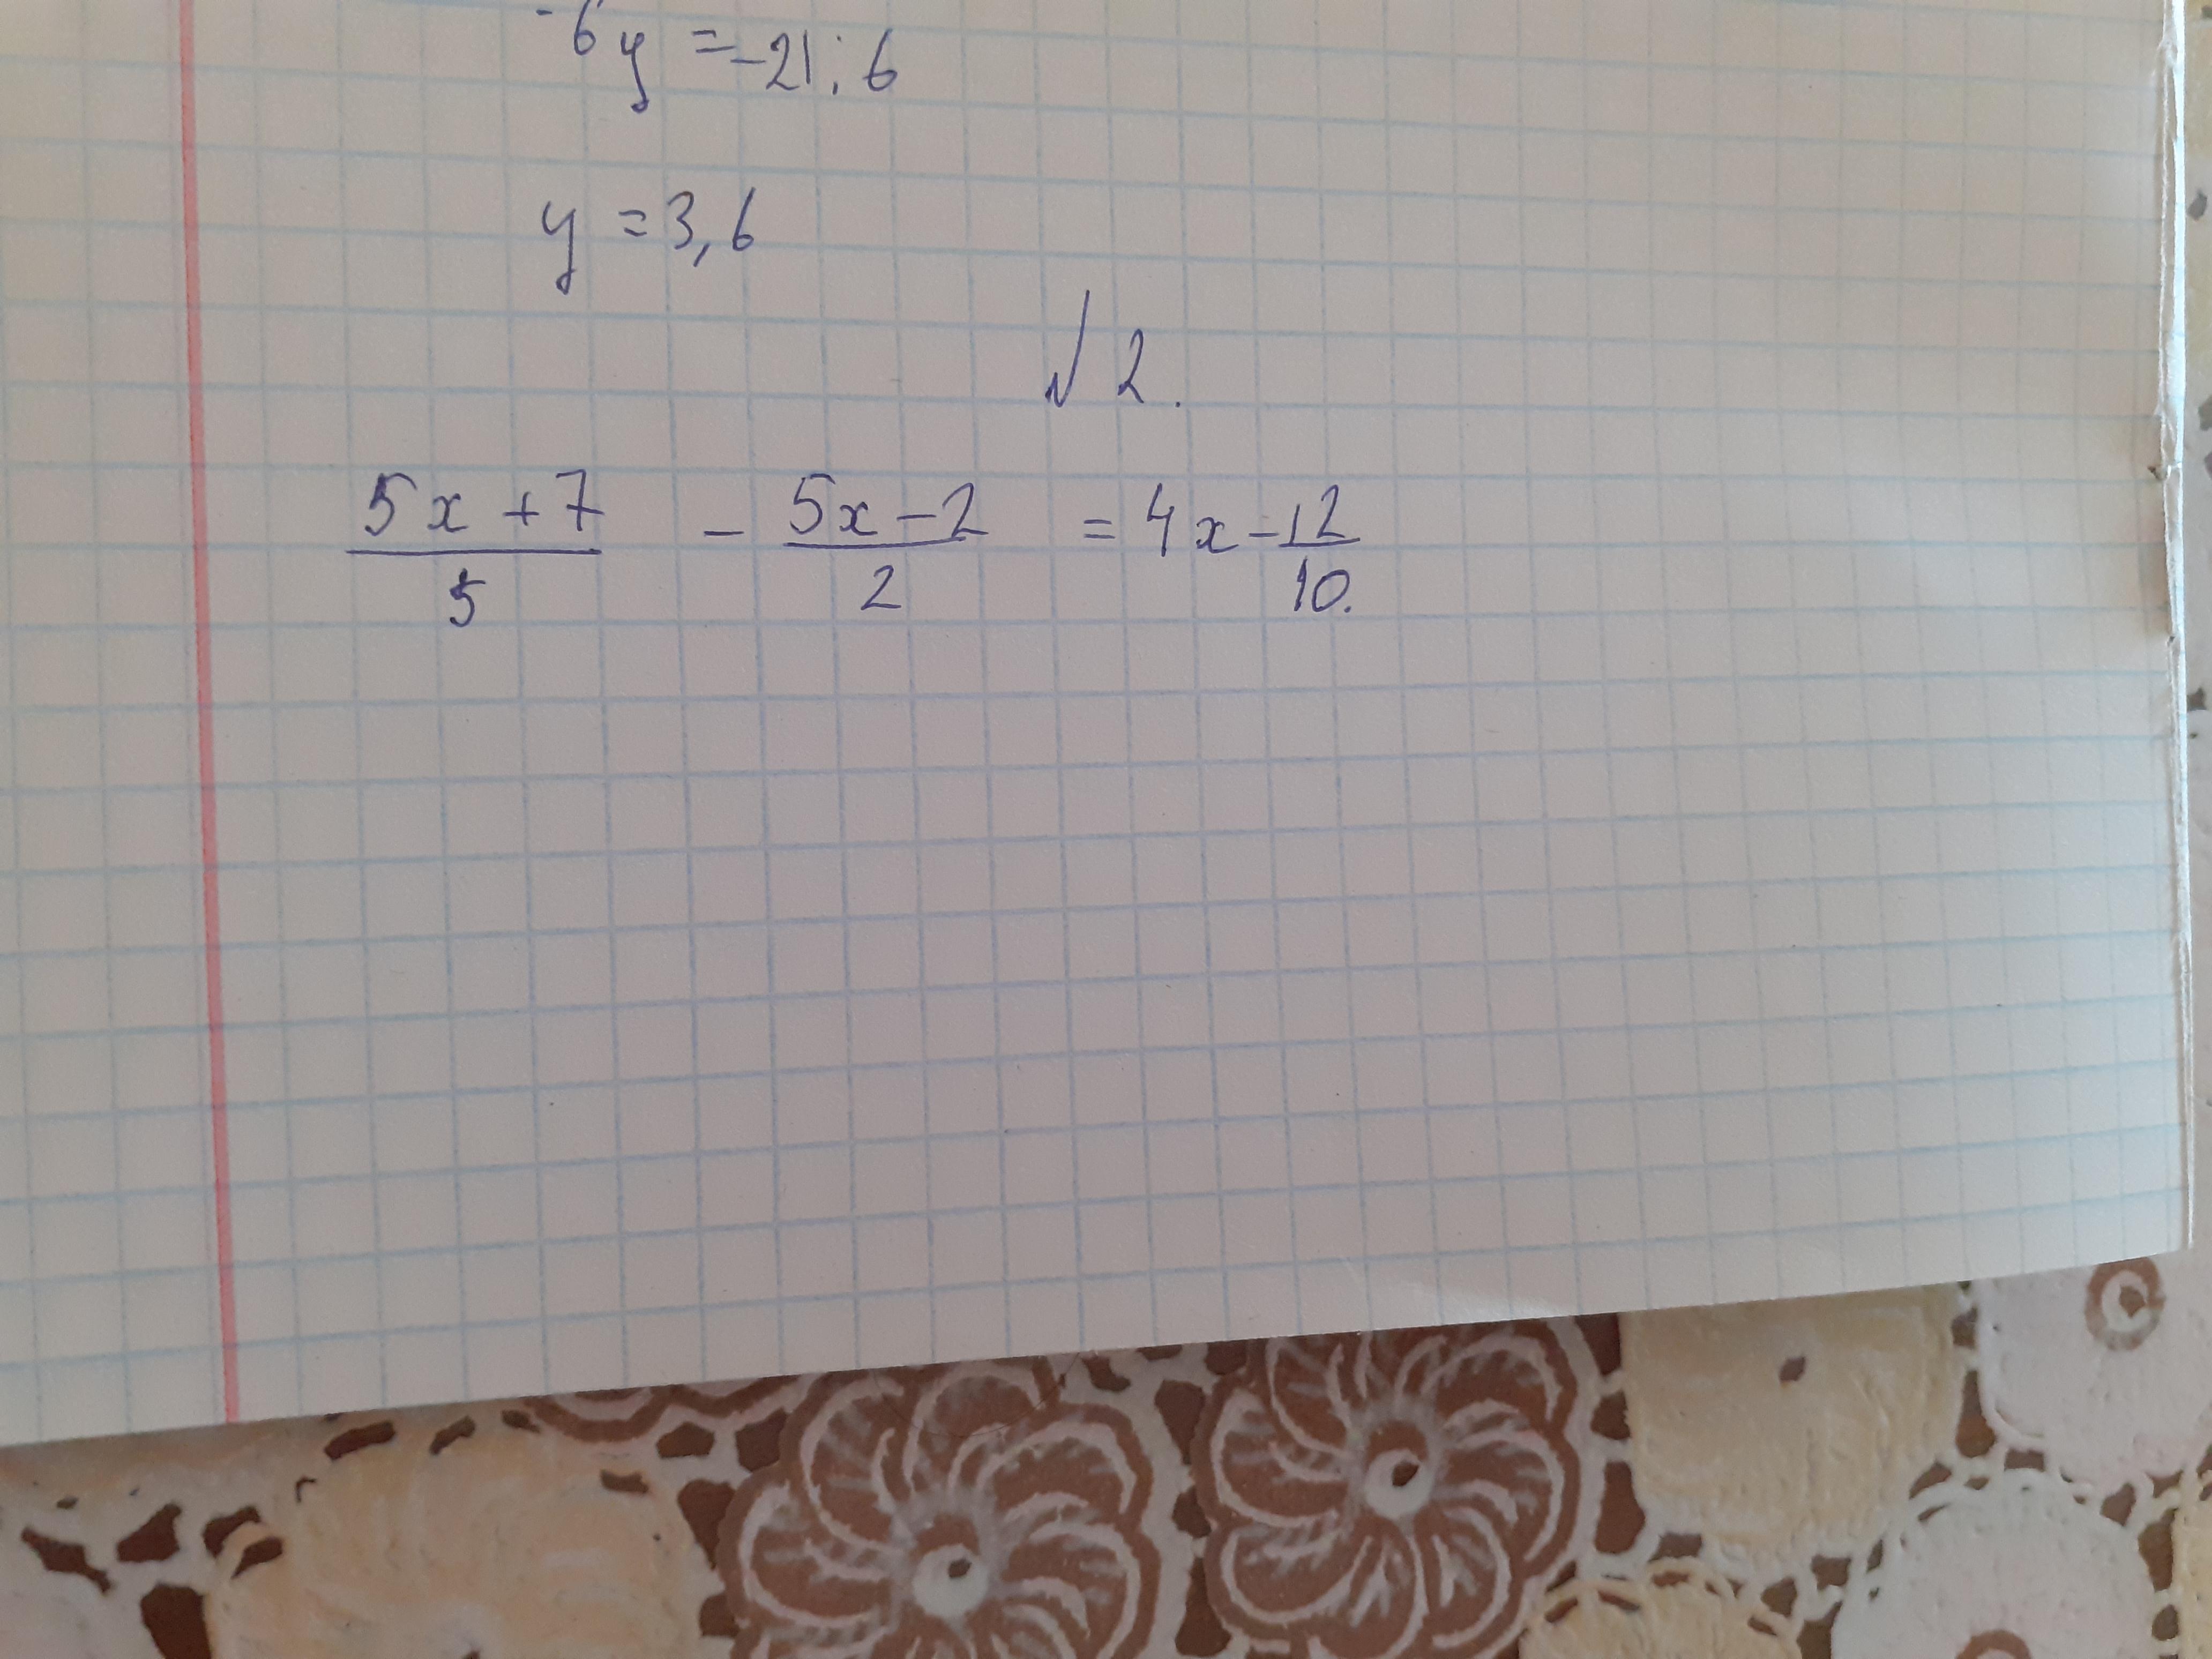 -6y = -21:6
y = 3,6
√2.
5x+7/5 - 5x-2/2 = 4x - 12/10.